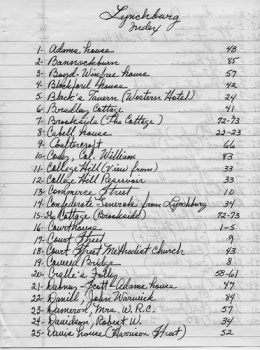 Lynchburg
Index
1- Adams house 48
2- Bannockburn 85
3- Boyd-Winfree house 57
4- Blackford house 42
5- Black's Tavern (Western Hotel) 24
6- Bradley Cottage 41
7- Brookside (The Cottage) 72-73
8- Cabell house 22-23
9- 66
10- Cody, Col. William 83
11- College Hill (View from) 33
12- College Hill Reservoir 33
13- Commerce Street 10
14- Confederate Generals from Lynchburg 34
15- Cottage (Brookside) 72-73
16- Courthouse 1-5
17- Court Street 9
18- Court Street Methodist Church 43
19- Covered Bridge 8
20- Crelle's Folley 58-61
21- Dabney-Scott-Adams house 47
22- Daniel, John Warwick 84
23- Dameron, Mrs. W.R.C. 57
24- Davidson, Robert W. 34
25- Davis house (Harrison Street) 52